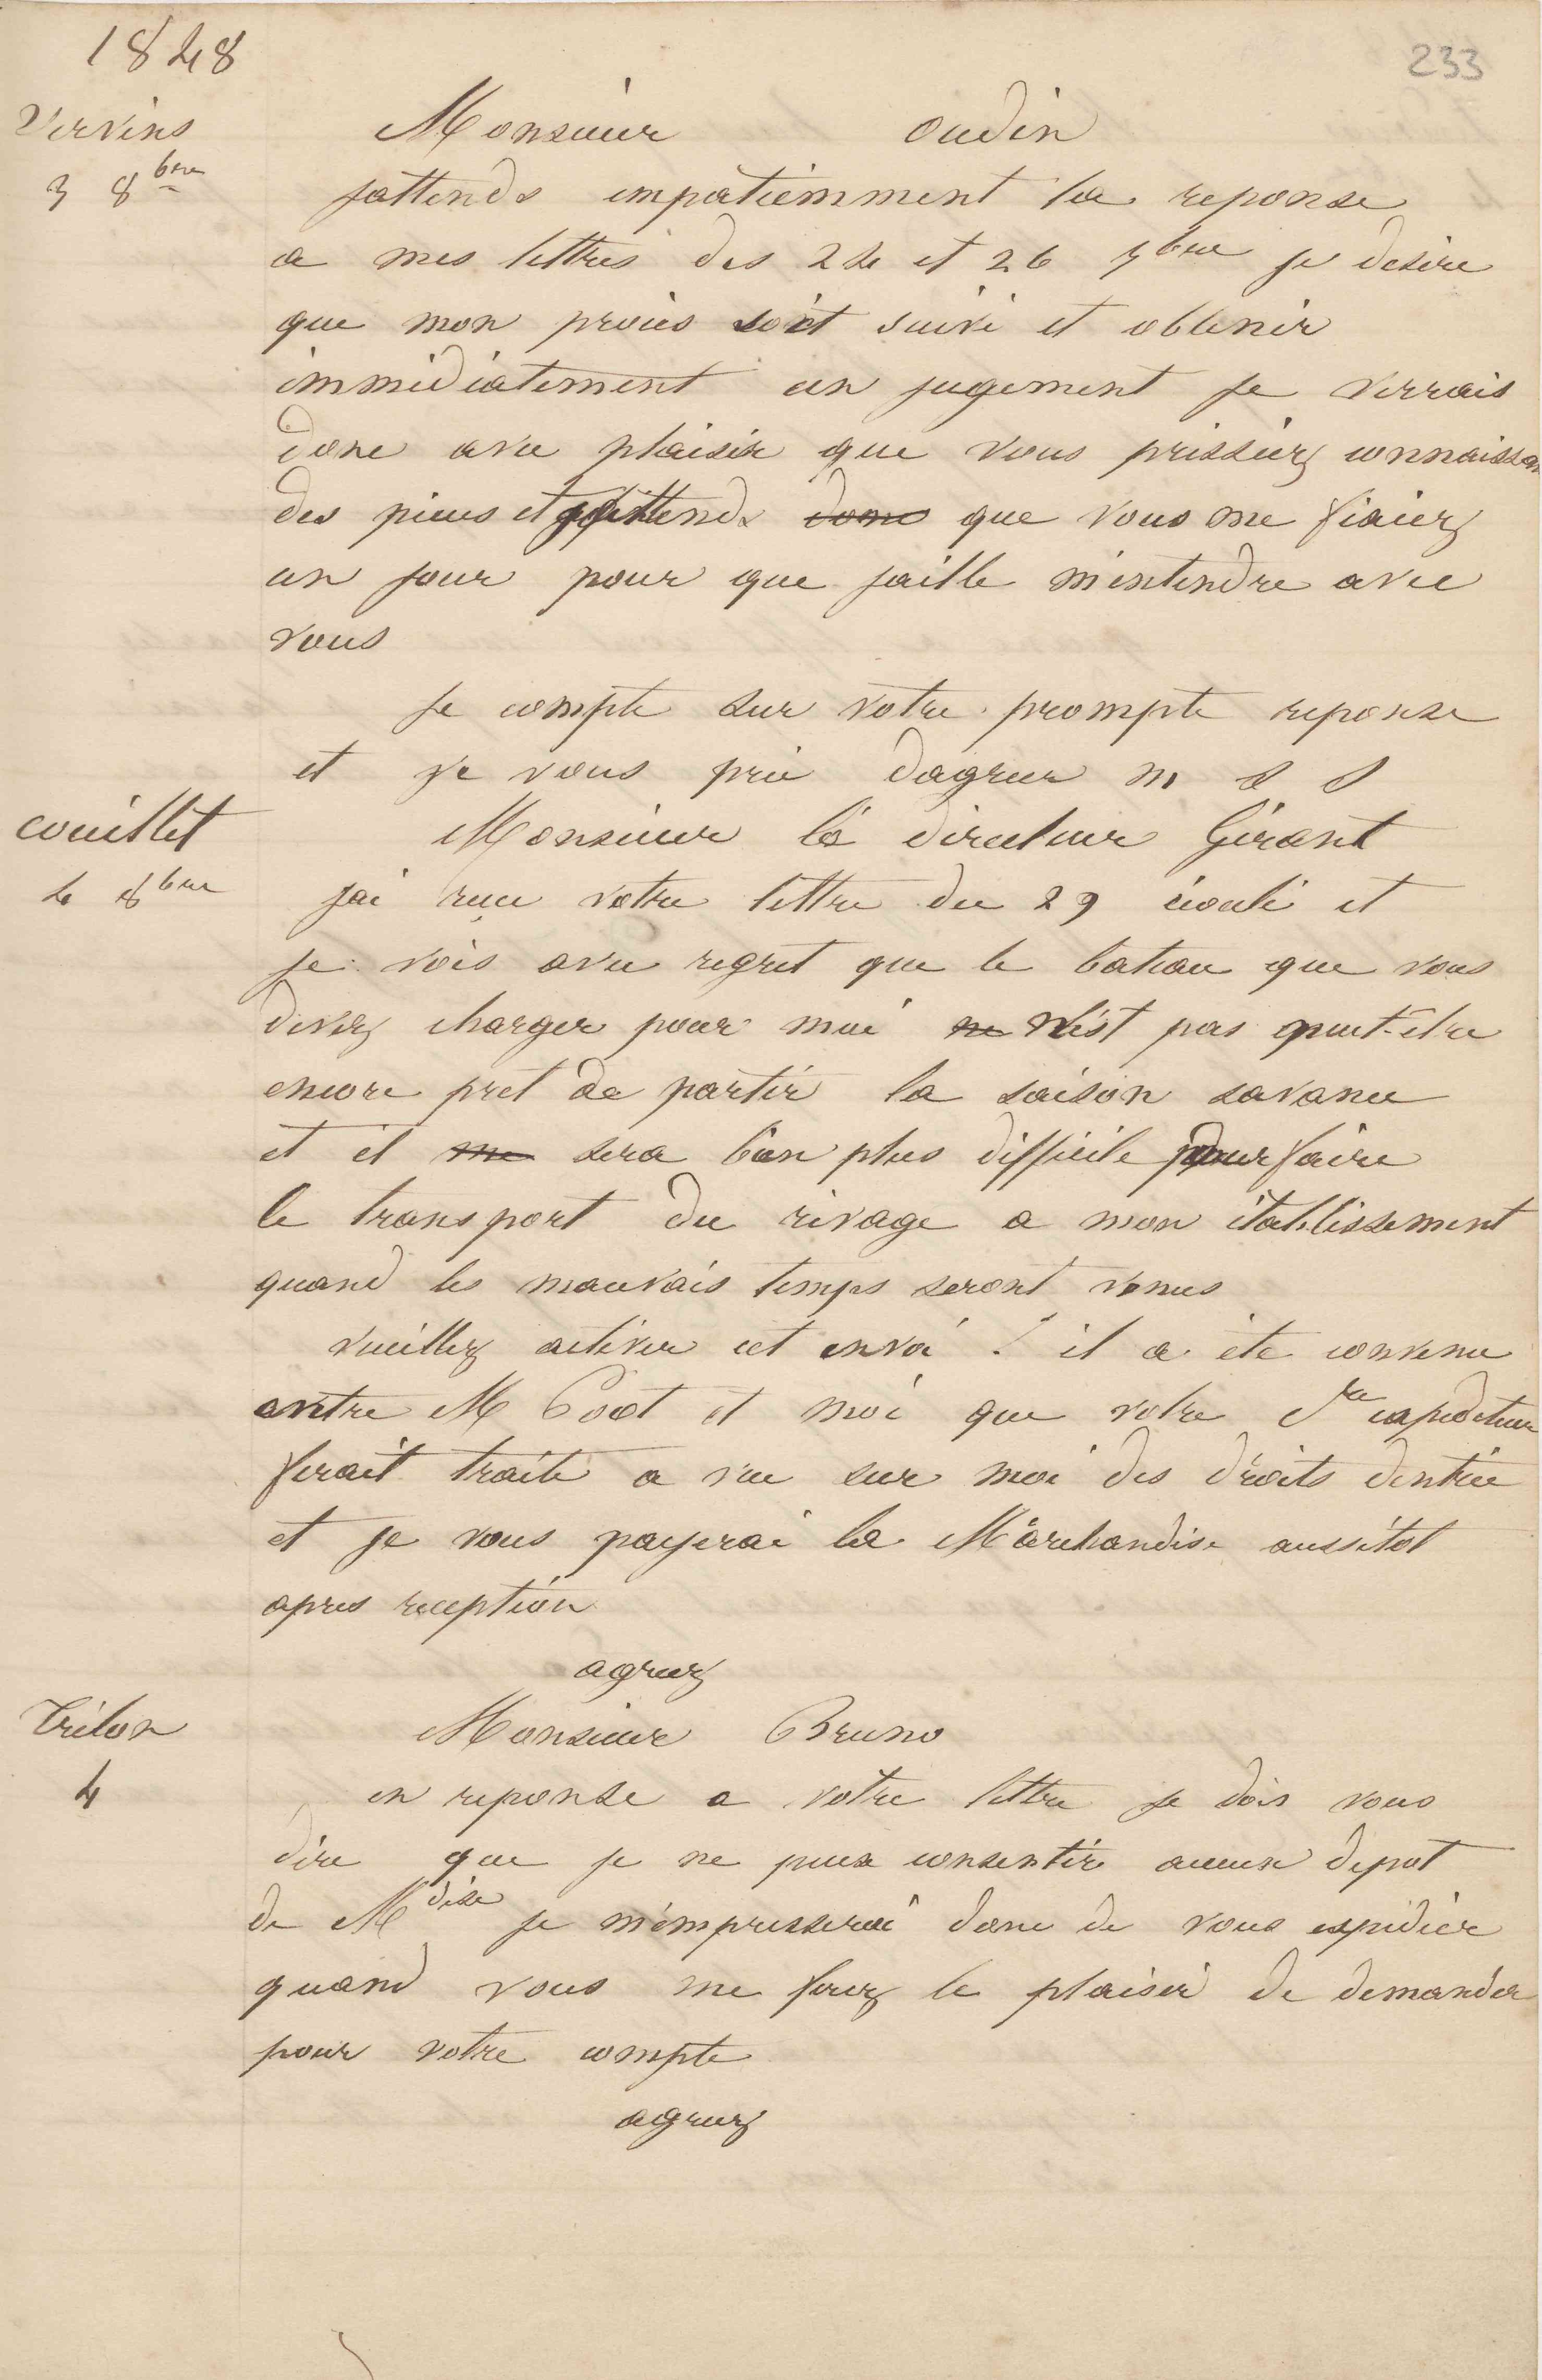 1848
233
Vervins
3 8bre
Monsieur oudin
jattends impatiemment la reponse
a mes lettres des 24 et 26 7bre je desire
que mon procès soit suivi et obtenir
immédiatement un jugement je verrais
donc avec plaisir que vous prissiez connaissan
des pieces et jattends donc que vous me fixiez
un jour pour que jaille m'entendre avec
vous
je compte sur votre prompte reponse
et je vous prie dagreer m s s
couillet
4 8bre
Monsieur le directeur Gérant
jai recu votre lettre du 29 écoulé et
je vois avec regret que le bateau que vous
devez charger pour moi ne n'est pas peut-etre
encore pret de partir la saison savance
et il me sera bien plus difficile faire
le transport du rivage a mon établissement
quand les mauvais temps seront venus
veuillez activer cet envoi . il a été convenu
entre M et moi que votre expediteur
ferait traite a vue sur moi des droits dentrée
et je vous payerai la Marchandise aussitot
apres reception
agreez
Trélon
4
Monsieur Bruno
en reponse a votre lettre je dois vous
dire que je ne peux consentir aucun depot
de Mdise je m'empresserai donc de vous expédier
quand vous me ferez le plaisir de demander
pour votre compte
agreez